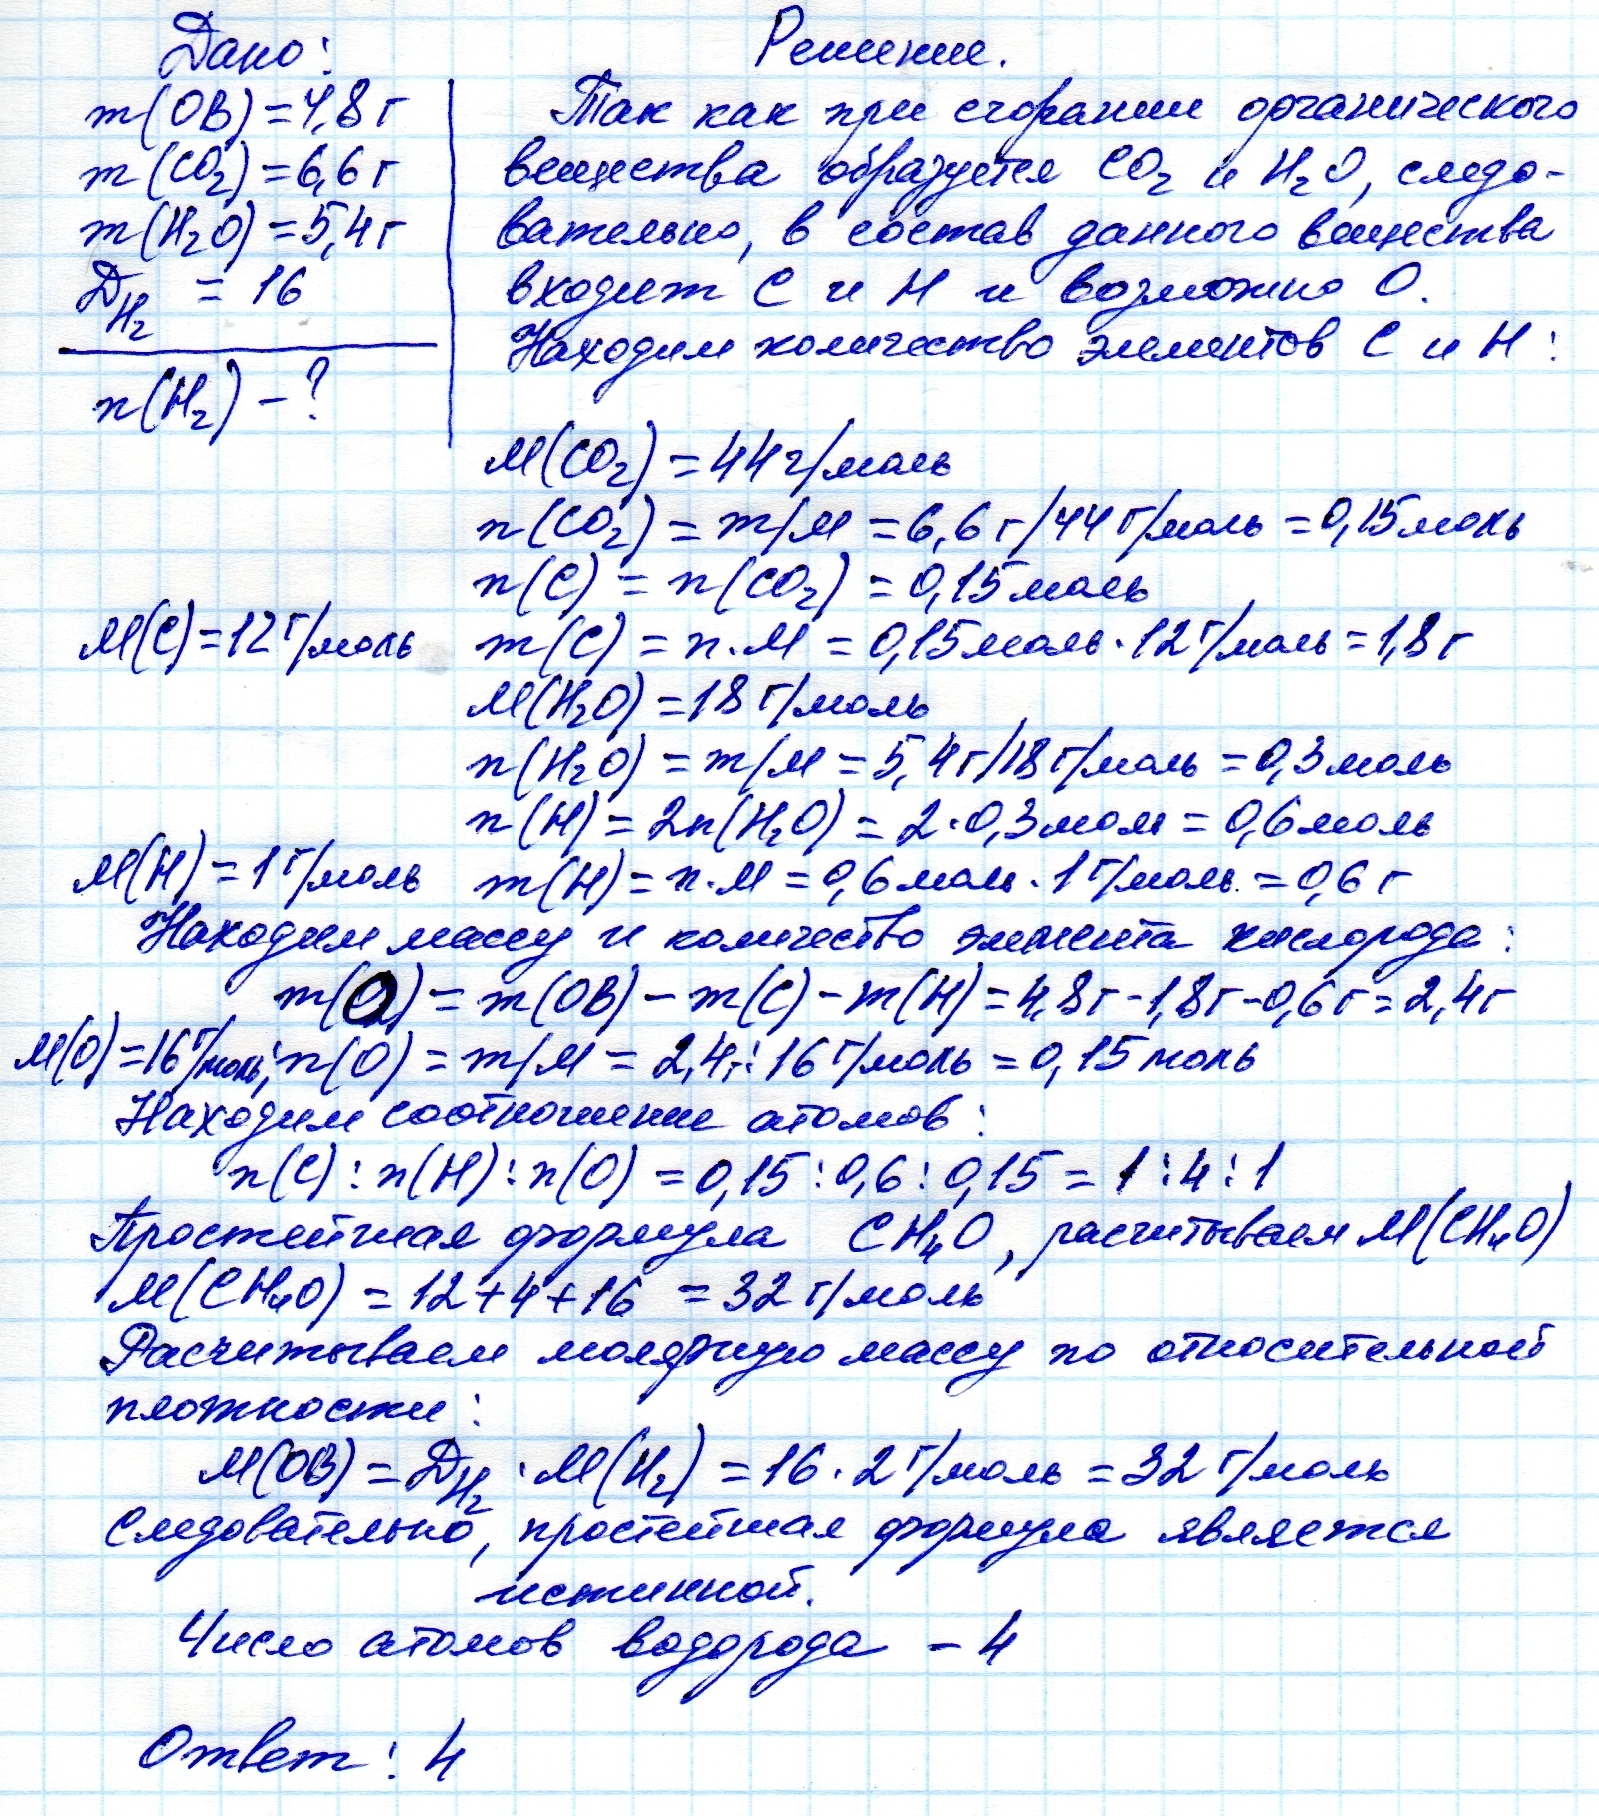 Дано:
m(ОВ) = 4,8 г
m(CO₂) = 6,6 г
m(H₂O) = 5,4 г
D_H₂ = 16
n(H₂) - ?
Решение.
Так как при сгорании органического
вещества образуется CO₂ и H₂O, следо-
вательно, в состав данного вещества
входит C и H и возможно O.
Находим количество элементов C и H:
M(CO₂) = 44 г/моль
n(CO₂) = m/M = 6,6 г/44 г/моль = 0,15 моль
n(C) = n(CO₂) = 0,15 моль
M(C) = 12 г/моль m(C) = n·M = 0,15 моль · 12 г/моль = 1,8 г
M(H₂O) = 18 г/моль
n(H₂O) = m/M = 5,4 г/18 г/моль = 0,3 моль
n(H) = 2n(H₂O) = 2·0,3 моль = 0,6 моль
M(H) = 1 г/моль m(H) = n·M = 0,6 моль · 1 г/моль. = 0,6 г
Находим массу и количество элемента кислорода:
m(O) = m(ОВ) - m(C) - m(H) = 4,8 г - 1,8 г - 0,6 г = 2,4 г
M(O) = 16 г/моль; n(O) = m/M = 2,4 г : 16 г/моль = 0,15 моль
Находим соотношение атомов:
n(C) : n(H) : n(O) = 0,15 : 0,6 : 0,15 = 1 : 4 : 1
Простейшая формула CH₄O, расчитываем M(CH₄O)
M(CH₄O) = 12 + 4 + 16 = 32 г/моль
Расчитываем молярную массу по относительной
плотности:
M(ОВ) = D_H₂ · M(H₂) = 16 · 2 г/моль = 32 г/моль
Следовательно, простейшая формула является
истинной.
Число атомов водорода - 4
Ответ: 4